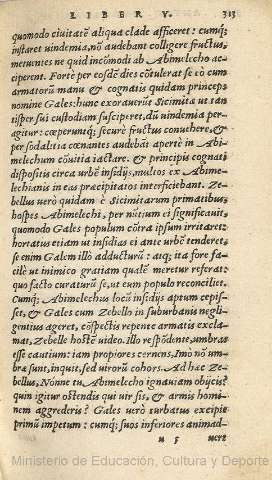 LIBER V. 313
quomodo ciuitatē aliqua clade afficeret : cumq́;
instaret uindemia, nō audebant colligere fructus,
metuentes ne quid incōmodi ab Abimelecho ac-
ciperent. Forte per eosdē dies cōtulerat se eò cum
armatorū manu & cognatis quidam princeps
nomine Gales: hunc exorauerūt Sicimitæ ut tan
tisper sui custodiam susciperet, dū uindemia per-
agitur: cœperuntq́; securè fructus conuehere, &
per sodalitia cœnantes audebāt apertè in Abi-
melechum cōuitia iactare. & principis cognati
dispositis circa urbē insidijs, multos ex Abime-
lechianis in eas præcipitatos interficiebant. Ze-
bellus uerò quidam è Sicimitarum primatibus,
hospes Abimelechi, per nūtium ei significauit,
quomodo Gales populum cōtra ipsum irritaret:
hortatus etiam ut insidias ei ante urbē tenderet,
se enim Galem illò adducturū : atq; ita fore fa-
cilè ut inimico gratiam qualē meretur referat:
quo facto curaturū se, ut eum populo reconciliet.
Cumq́; Abimelechus locū insidijs aptum cepis-
set, & Gales cum Zebello in suburbanis negli-
gentius ageret, cōspectis repente armatis excla-
mat, Zebelle hostē uideo. Illo respōdente, umbras
esse cautium: iam propiores cernens, Imò nō um-
bræ sunt, inquit, sed uirorū cohors. Ad hæc Ze-
bellus, Nónne tu Abimelecho ignauiam obijcis?
quin igitur ostendis qui uir sis, & armis homi-
nem aggrederis? Gales uerò turbatus excipit
primū impetum : cumq́; suos inferiores animad-
u 5 uere
Ministerio de Educación, Cultura y Deporte